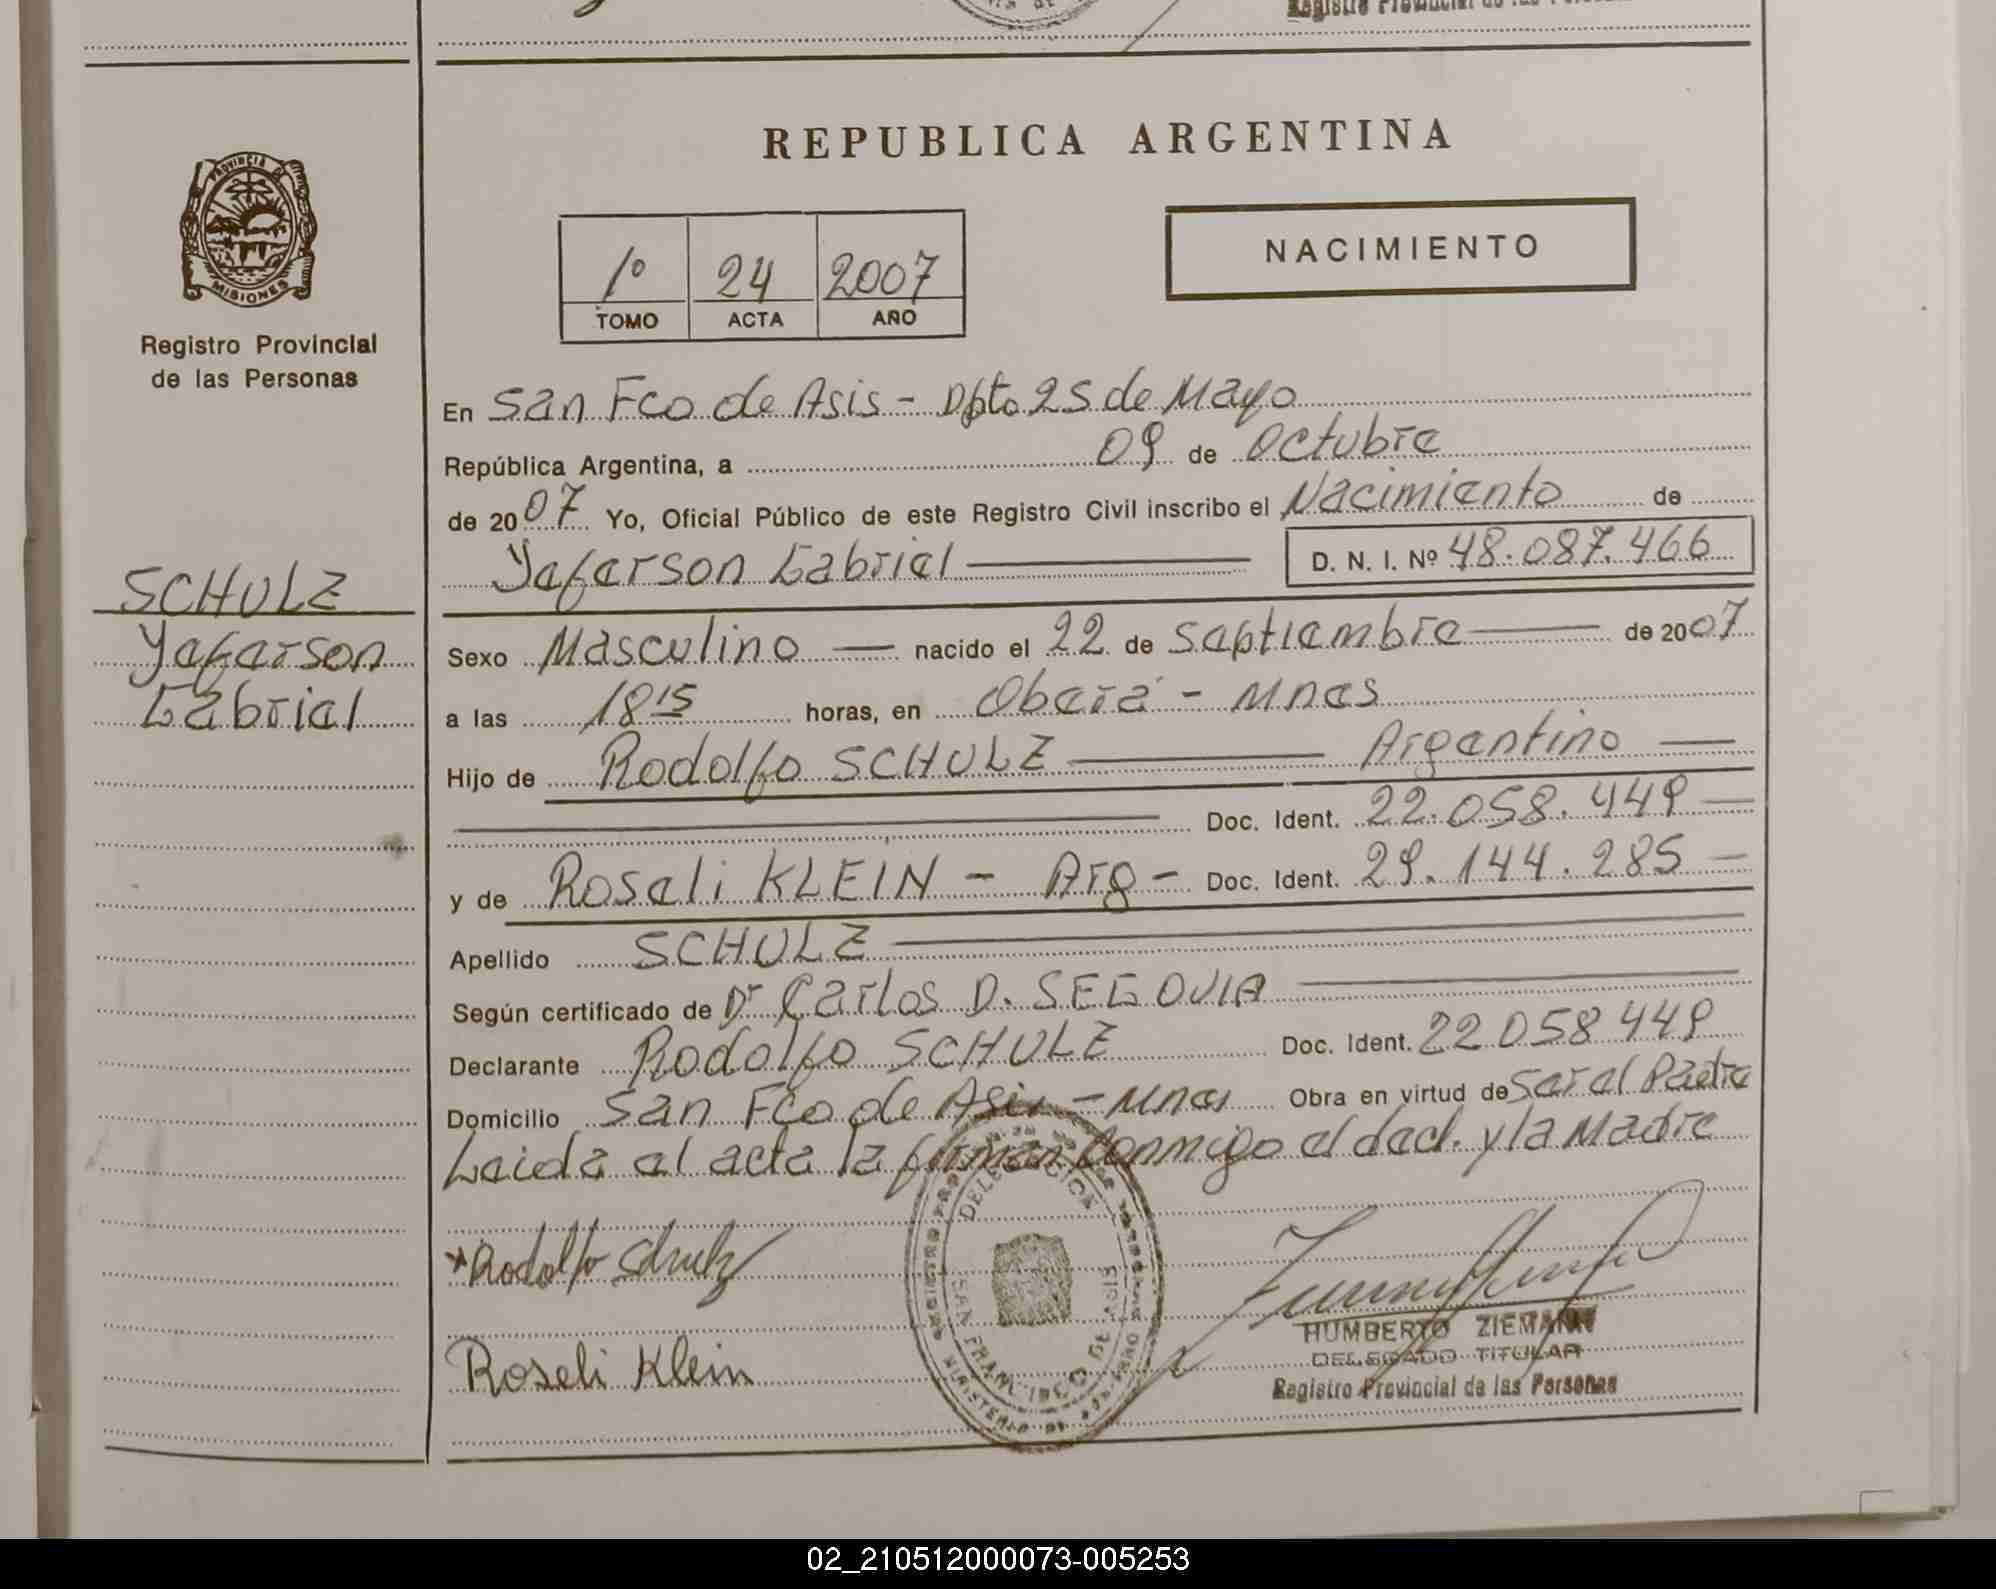 Registro Provincial de las Personas
REPUBLICA ARGENTINA
PROVINCIA DE
MISIONES
Registro Provincial
de las Personas
1º 24 2007
TOMO ACTA AÑO
NACIMIENTO
En San Fco de Asis - Dpto 25 de Mayo
República Argentina, a 09 de Octubre
de 2007 Yo, Oficial Público de este Registro Civil inscribo el Nacimiento de
Yeferson Gabriel D. N. I. Nº 48.087.466
SCHULZ
Yeferson
Gabriel
Sexo Masculino nacido el 22 de Septiembre de 2007
a las 18 15 horas, en Oberá - Mnes
Hijo de Rodolfo SCHULZ Argentino
Doc. Ident. 22.058.449
y de Roseli KLEIN - Arg - Doc. Ident. 29.144.285
Apellido SCHULZ
Según certificado de Dr Carlos D. SEGOVIA
Declarante Rodolfo SCHULZ Doc. Ident. 22058449
Domicilio San Fco de Asis - Mnes Obra en virtud de Ser el Padre
Leida el acta la firman conmigo el decl. y la Madre
Rodolfo Schulz
Roseli Klein
DELEGACION
SAN FRANCISCO DE ASIS
HUMBERTO ZIEMANN
DELEGADO TITULAR
Registro Provincial de las Personas
02_210512000073-005253